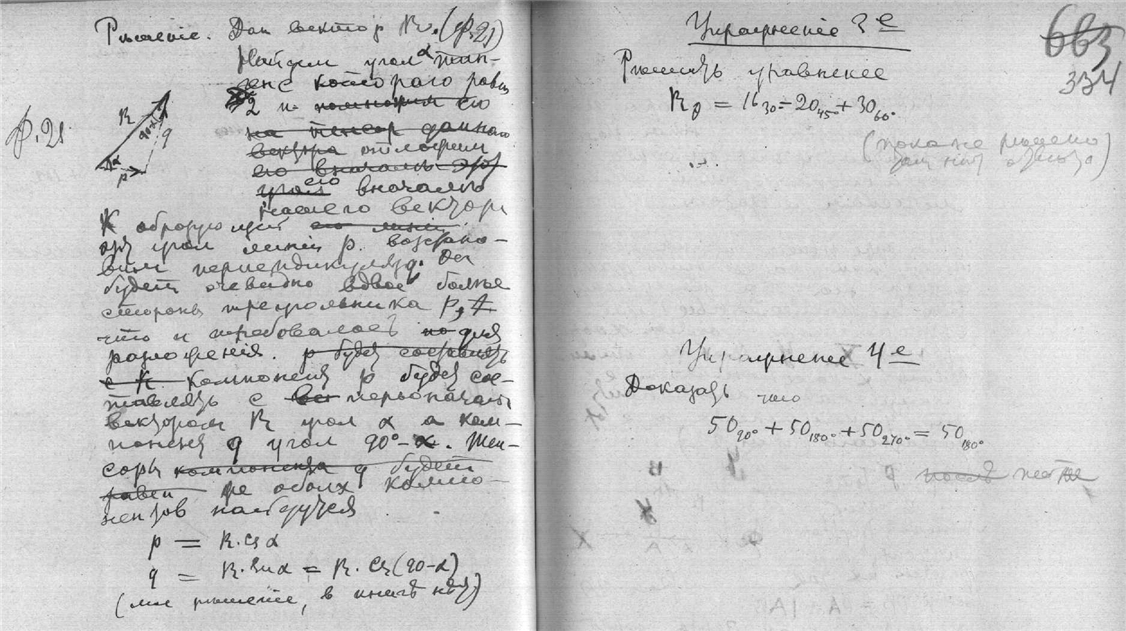 Рѣшеніе. Дан вектор R. (ф.21)
Найдем угол α тан-
генс котораго равен
2 и помножим его
на тенсор даннаго
вектора отложим
его вначалѣ эт
угол его вначалѣ
нашего вектора
ф.21
R
90-α
q
α
p
К образующей его линіи
эту угол линіи p. возстано-
вим перпендикуляр q. Он
будет очевидно вдвое больше
стороны треугольника p,
что и требовалось по для
разложенія. p будет составлять
с R. Компонент p будет сос-
тавлять с первонач
вектором R угол α а ком-
понент q угол 90°-α. Тен-
соры компонента q будет
равен же обоих компо-
нентов найдутся
p = R.Cs α
q = R.Sn α = R. Cs(90-α)
(мое рѣшеніе, в книгѣ нѣт)
Упражненіе 3е
663
334
Рѣшить уравненіе
R = 16₃₀ - 20₄₅° + 30₆₀°
(пока не рѣшено
Упражненіе 4е
Доказать что
50₉₀° + 50₁₈₀° + 50₂₇₀° = 50₁₈₀°